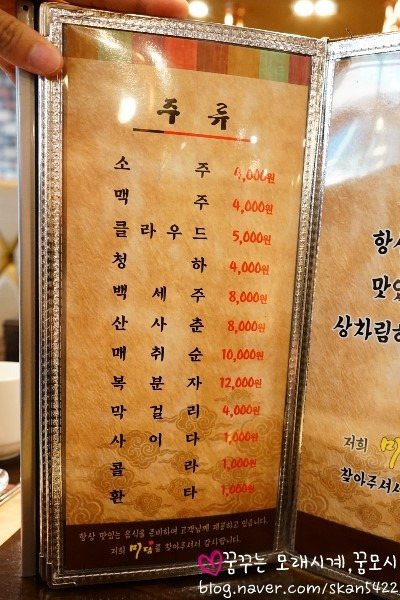 주 류
소 주 4,000원
맥 주 4,000원
클 라 우 드 5,000원
청 하 4,000원
백 세 주 8,000원
산 사 춘 8,000원
매 취 순 10,000원
복 분 자 12,000원
막 걸 리 4,000원
사 이 다 1,000원
콜 라 1,000원
환 타 1,000원
항상 맛있는 음식을 준비하여 고객님께 제공하고 있습니다.
저희 미담를 찾아주셔서 감사합니다.
항상
맛있
상차림
저희 미
찾아주셔서
꿈꾸는 모래시계,꿈모시
blog.naver.com/skan5422